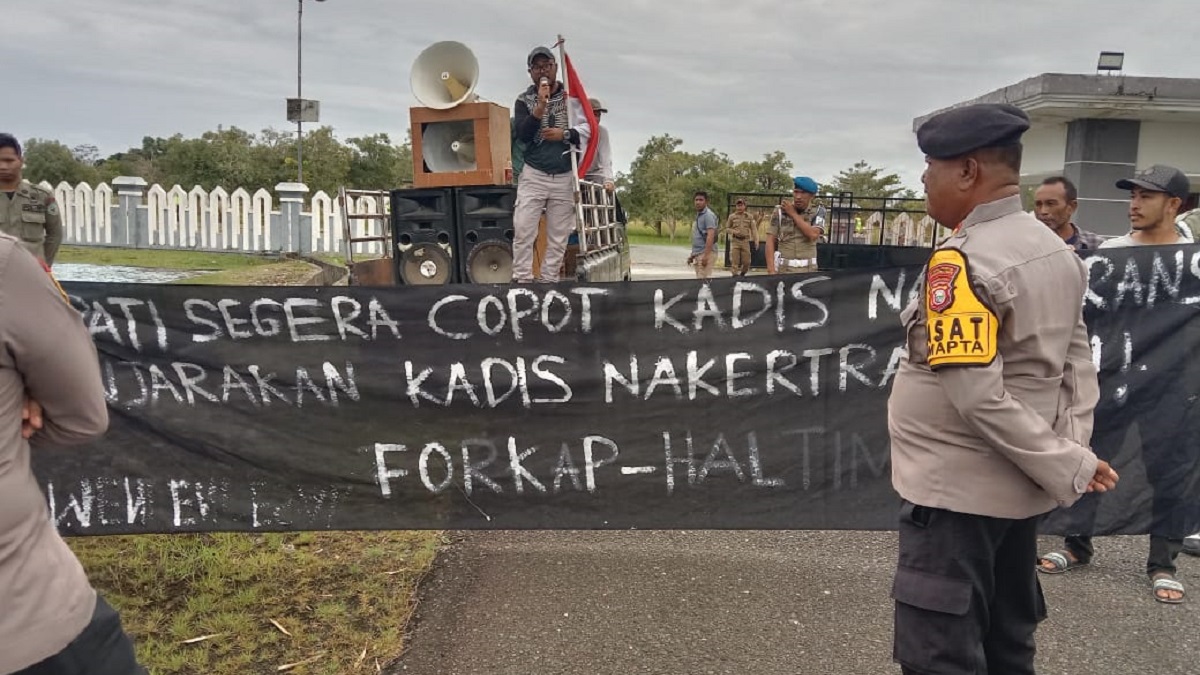 PATI SEGERA COPOT KADIS NA RANS
UJARAKAN KADIS NAKERTRA !
FORKAP-HALTIM
SAT
MAPTA